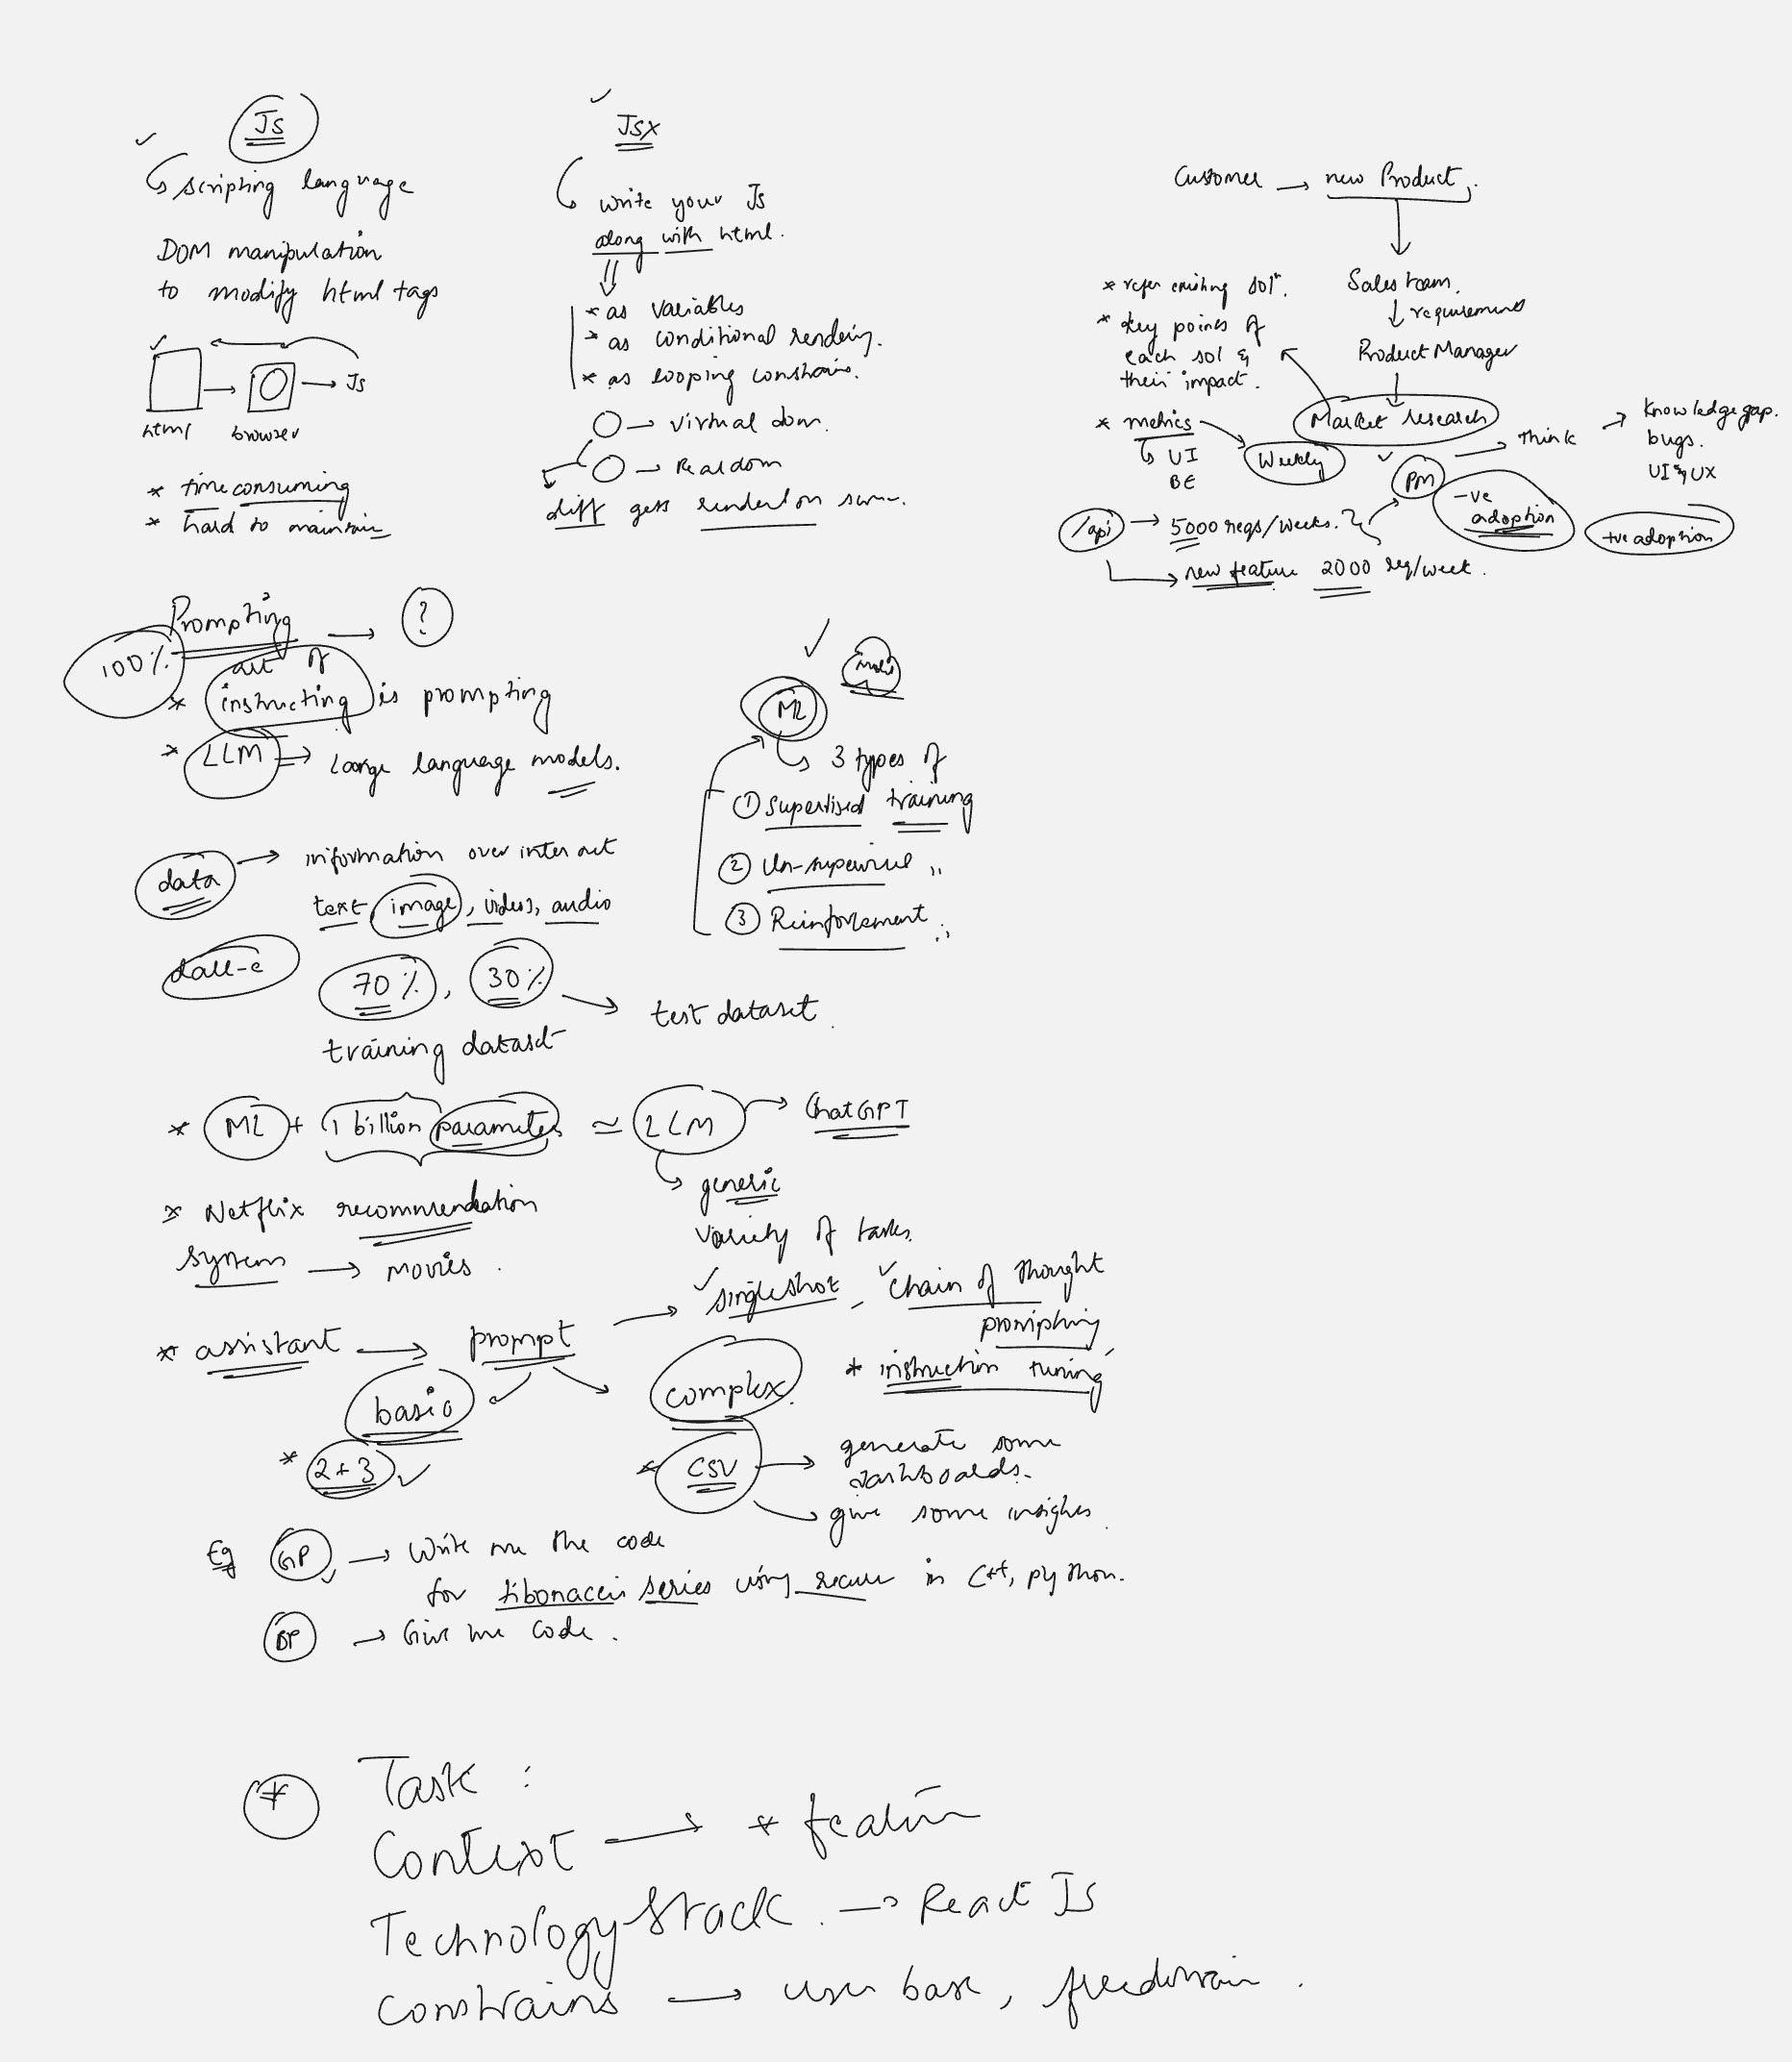 Js
scripting language
DOM manipulation
to modify html tags
Js
html browser
* time consuming
* hard to maintain
JSX
write your Js
along with html.
* as variables
* as conditional
* as looping
→ virtual dom.
→ Real dom
diff gets on
Customer → new Product.
Sales team.
↓ requirements
Product Manager
Market research
* refer existing solⁿ.
* key points of
each sol &
their impact.
* metrics
UI
BE
Weekly
PM
→ think
→ Knowledge gap.
bugs.
UI & UX
-ve
adoption
+ve adoption
/api → 5000 reqs/weeks.
→ new feature 2000 req/week.
Prompting → ?
100%
* art of
instructing is prompting
* LLM ⇒ large language models.
ML
3 types of
① Supervised training
② "
③ Reinforcement "
data → information over internet
text, image, videos, audio
dall-e
70%, 30% → test dataset.
training dataset
* ML + 1 billion parameters ≃ LLM → ChatGPT
generic
variety of tasks.
* Netflix recommendation
system → movies.
* assistant → prompt → single shot, chain of thought
prompting
* instruction tuning
basic
complex.
* 2+3
* CSV → generate some
dashboards.
→ give some insights.
Eg GP → Write me the code
for fibonacci series using in C++, python.
BP → Give me code.
* Task :
Context → * feature
Technology Stack. → React Js
constrains → user base,